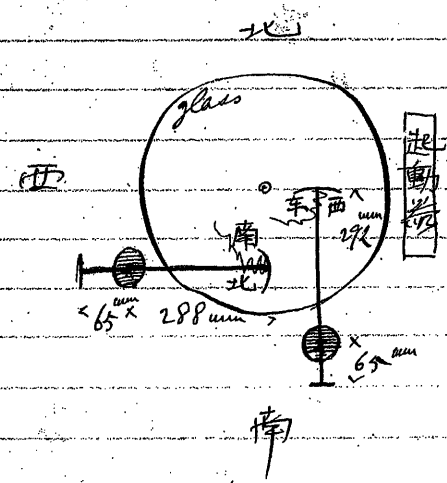 北
glass
西
起動器
東 西
292 mm
南
北
65 mm
288 mm
65 mm
南